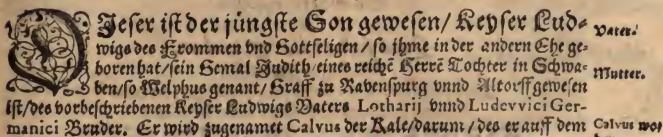 Dieser ist der jüngste Son gewesen / Keyser Lud⸗ Vater.
wigs des Frommen vnd Gottseligen / so jhme in der andern Ehe ge⸗
boren hat / sein Gemal Judith / eines reichē Herrē Tochter in Schwa⸗ Mutter.
ben / so Welphus genant / Graff zu Rabenspurg vnnd Altorff gewesen
ist / des vorbeschriebenen Keyser Ludwigs Vaters Lotharij vnnd Ludevvici Ger-
manici Bruder. Er wird zugenamet Calvus der Kale / darum / des er auff dem Calvus wol